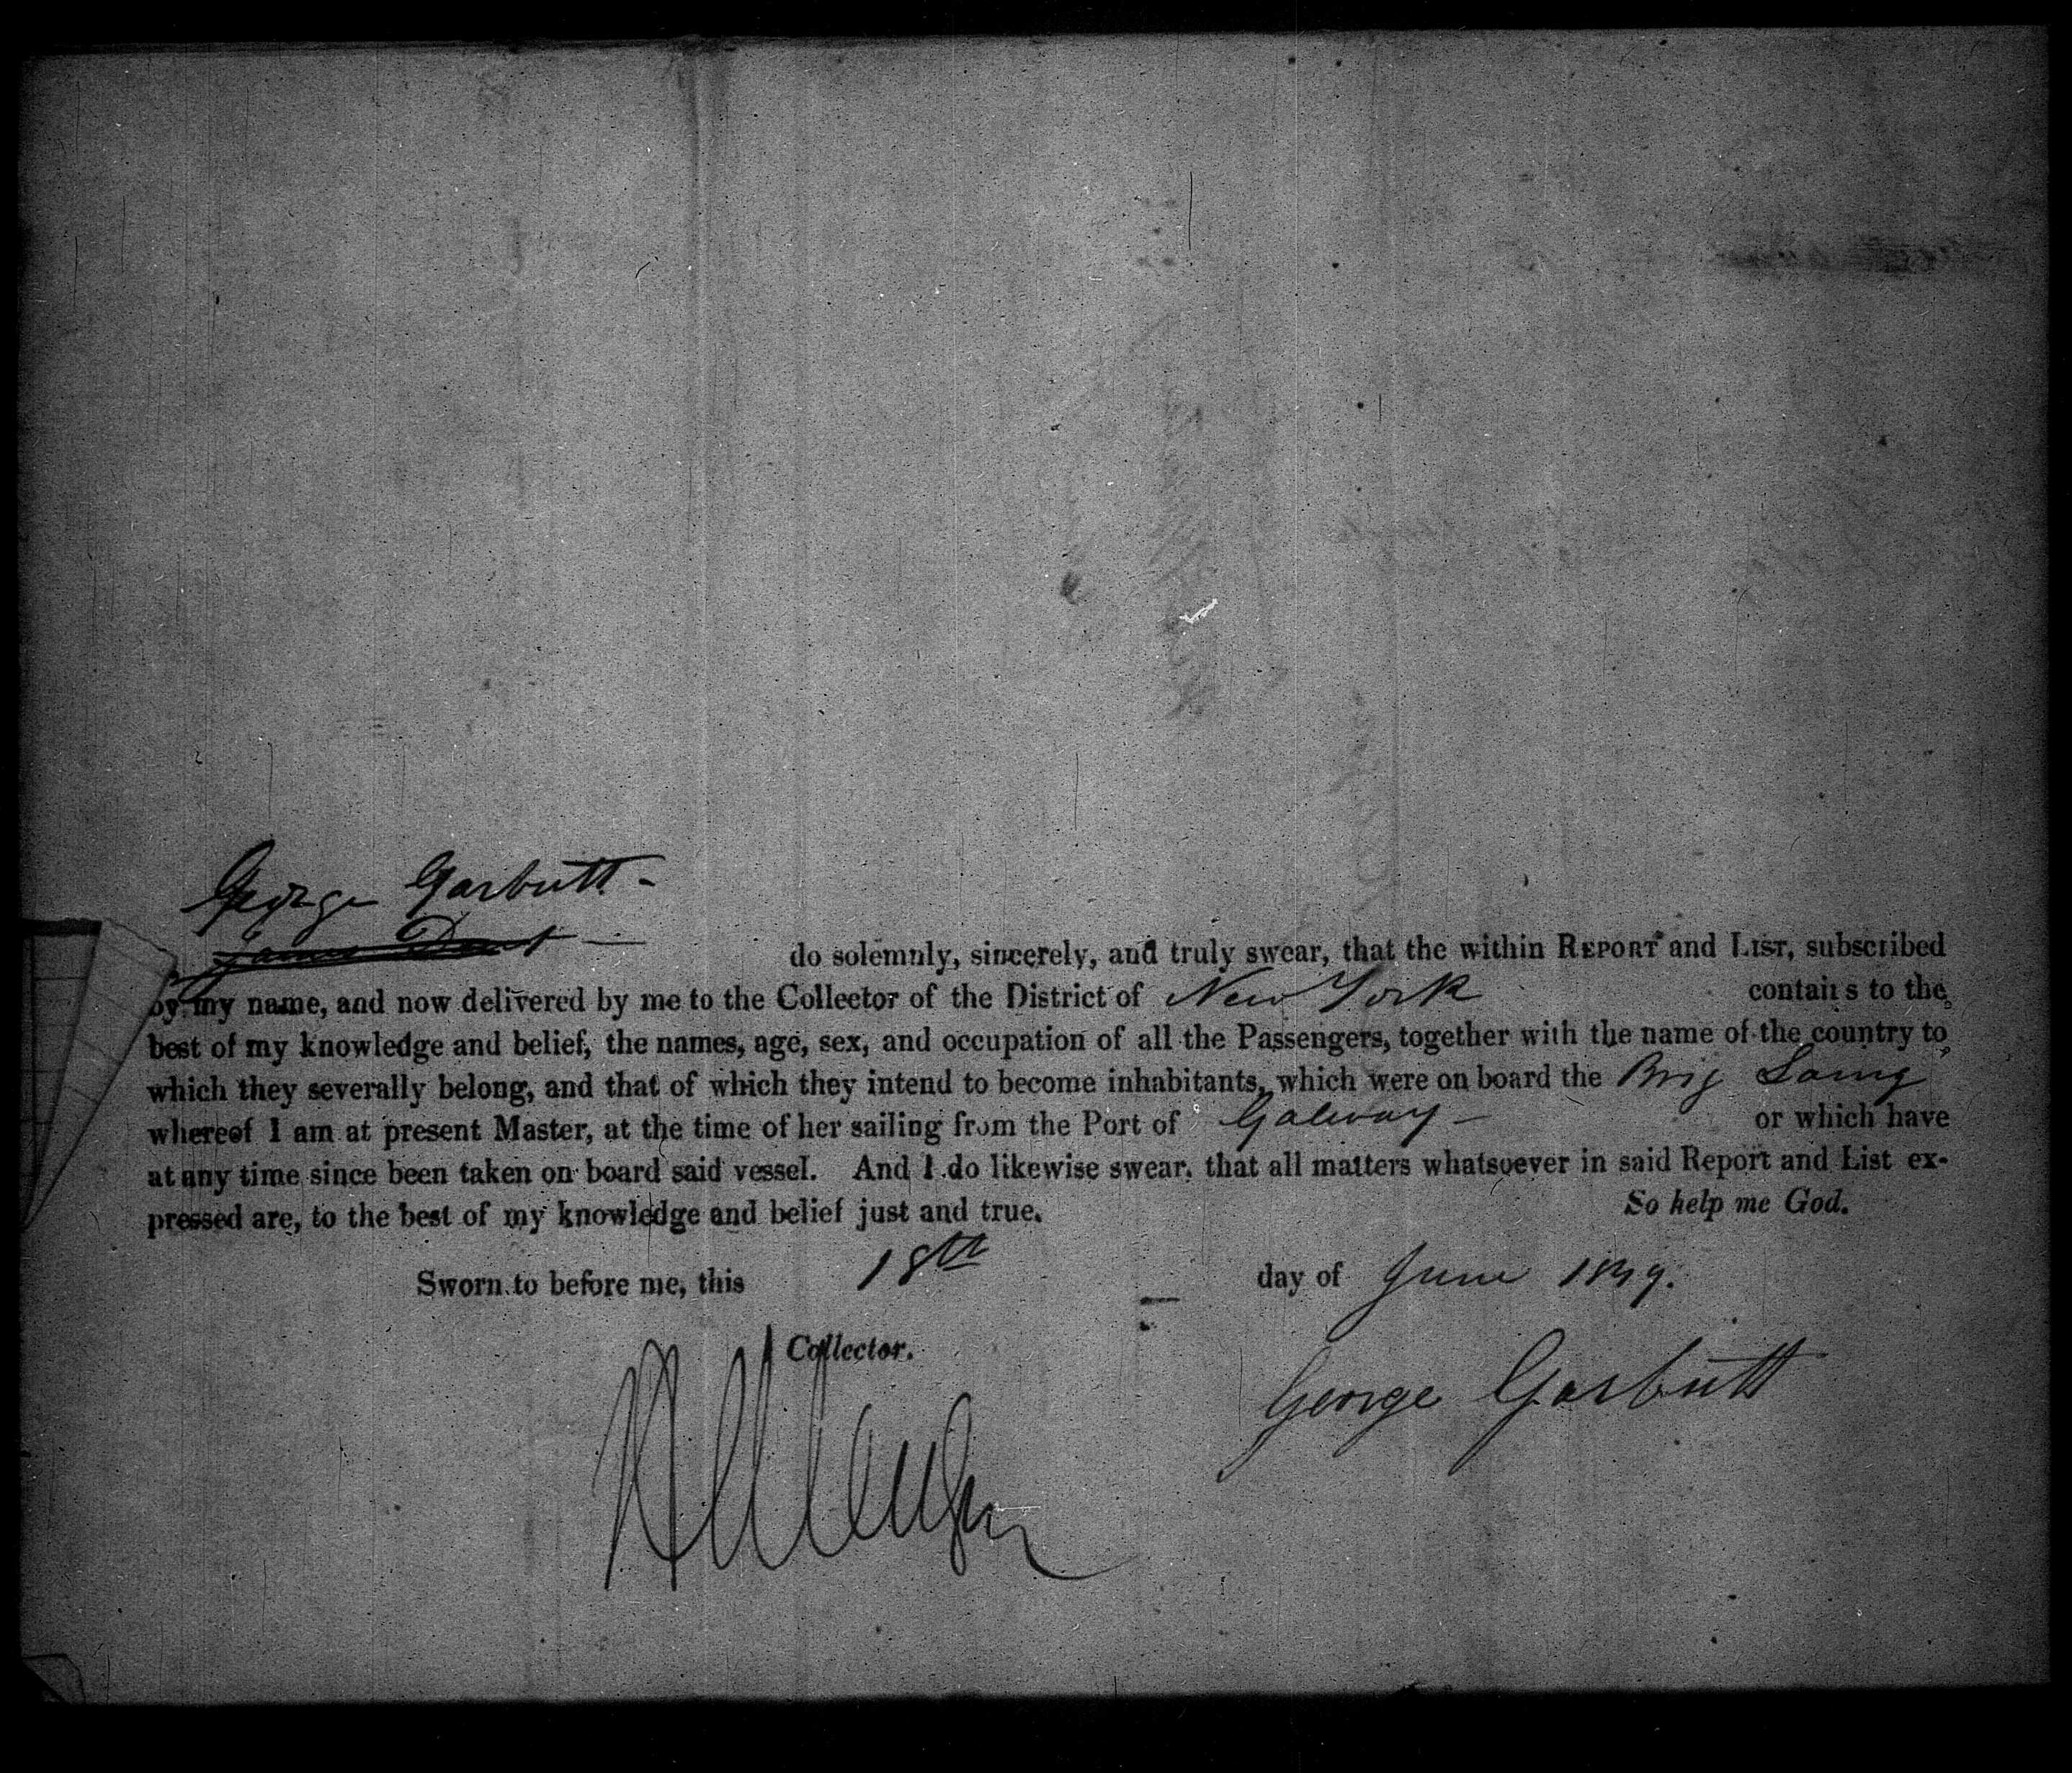 George Garbutt -
James
do solemnly, sincerely, and truly swear, that the within REPORT and LIST, subscribed
by my name, and now delivered by me to the Collector of the District of New York contains to the
best of my knowledge and belief, the names, age, sex, and occupation of all the Passengers, together with the name of the country to
which they severally belong, and that of which they intend to become inhabitants, which were on board the Brig Laing
whereof I am at present Master, at the time of her sailing from the Port of Galway - or which have
at any time since been taken on board said vessel. And I do likewise swear, that all matters whatsoever in said Report and List ex-
pressed are, to the best of my knowledge and belief just and true. So help me God.
Sworn to before me, this 18th day of June 1849.
Collector.
George Garbutt